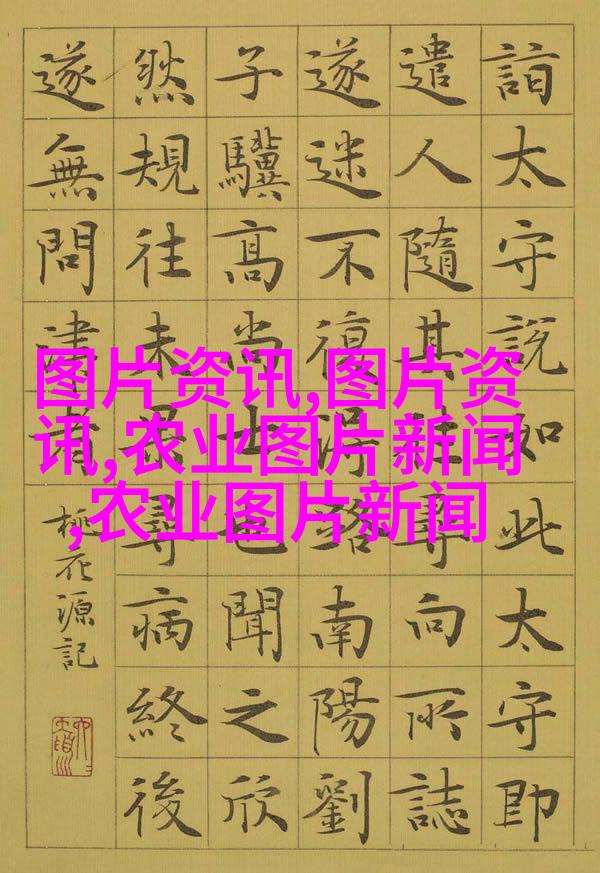 詣太守說如此太守即
遣人隨其往尋向所誌
遂迷不復得路南陽劉
子驥高尚士也聞之欣
然規往未果尋病終後
遂無問津者
桃花源記
图片资讯,图片资
讯,农业图片新闻
,农业图片新闻